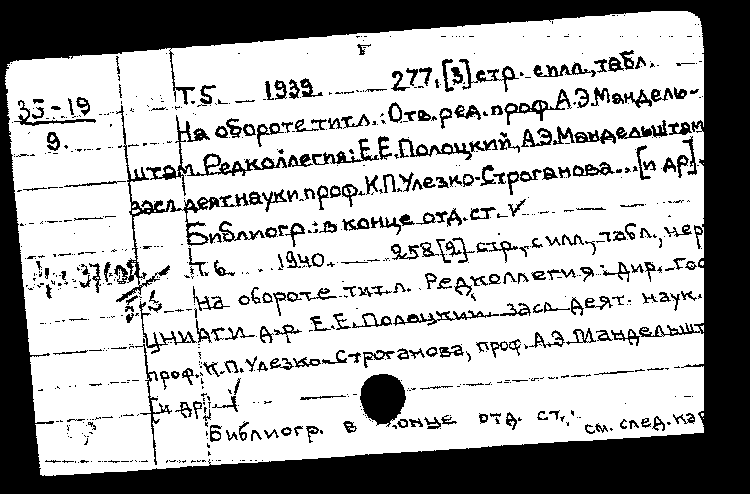 Т.5. 1939. 277,[3] стр. с илл., табл.
35-19
9.
На обороте тит.л.: Отв. ред. проф. А.Э.Мандель-
штам. Редколлегия: Е.Е.Полоцкий, А.Э.Мандельштам
засл. деят. науки проф. К.П.Улезко-Строганова...[и др]
Библиогр.: в конце отд. ст. V
Т.6. 1940. 258[2] стр., с илл., табл., чер
5-6
на обороте тит.л. Редколлегия: Дир. Гос
ЦНИАГИ д-р Е.Е. Полоцкий засл. деят. наук.
проф. К.П.Улезко-Строганова, проф. А.Э.Мандельшт
[и др] V
Библиогр. в конце отд. ст.
см. след. кар